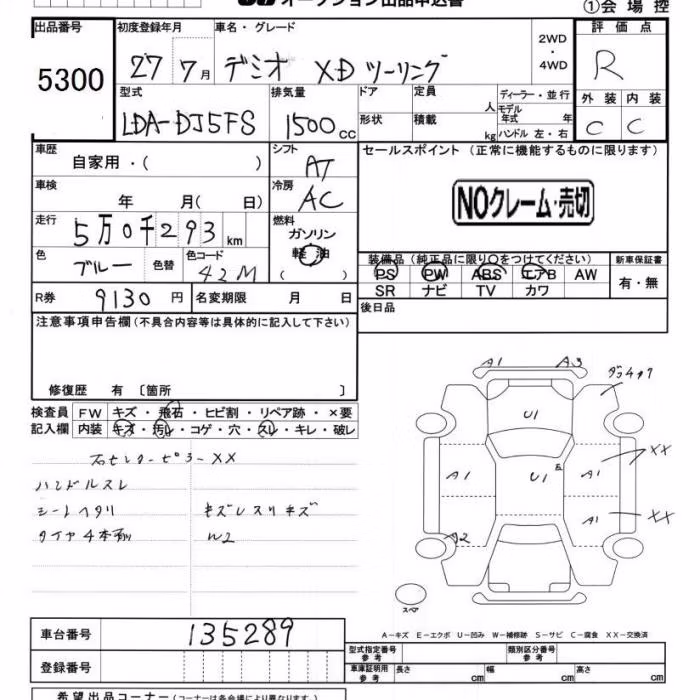 オークション出品申込書
①会場控
出品番号
5300
初度登録年月
27 7月
車名・グレード
デミオ XDツーリング
2WD
・
4WD
評価点
R
外装 内装
C C
型式
LDA-DJ5FS
排気量
1500cc
ドア
形状
定員
人
積載
kg
ディーラー・並行
モデル年式 年
ハンドル 左・右
車歴
自家用・( )
シフト
AT
セールスポイント (正常に機能するものに限ります)
NOクレーム・売切
車検
年 月( 日)
冷房
AC
走行
5万0千293km
燃料
ガソリン
軽油
( )
色
ブルー
色替
色コード
42M
装備品(純正品に限り○をつけてください)
PS PW ABS エアB AW
SR ナビ TV カワ
新車保証書
有・無
R券 9130円
名変期限 月 日
後日品
注意事項申告欄(不具合内容等は具体的に記入して下さい)
修復歴 有 〔箇所 〕
検査員
記入欄
FW キズ・飛石・ヒビ割・リペア跡・×要
内装 キズ・汚レ・コゲ・穴・スレ・キレ・破レ
右センターピラーXX
ハンドルスレ
シートヘタリ
タイヤ4本有
キズレスリキズ
W2
A1 A3
U1
XX
A1 U1 A1
A1 XX
A2
スペア
A-キズ E-エクボ U-凹み W-補修跡 S-サビ C-腐食 XX-交換済
車台番号 135289
登録番号
型式指定番号
参考
類別区分番号
参考
車庫証明用
参考
長さ cm 幅 cm 高さ cm
希望出品コーナー(コーナーは各会場により異なります)